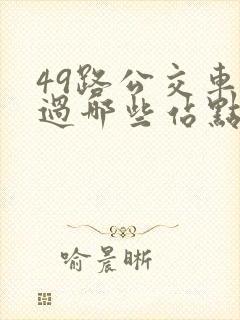 49路公交車
過哪些佔點
喻晨晰